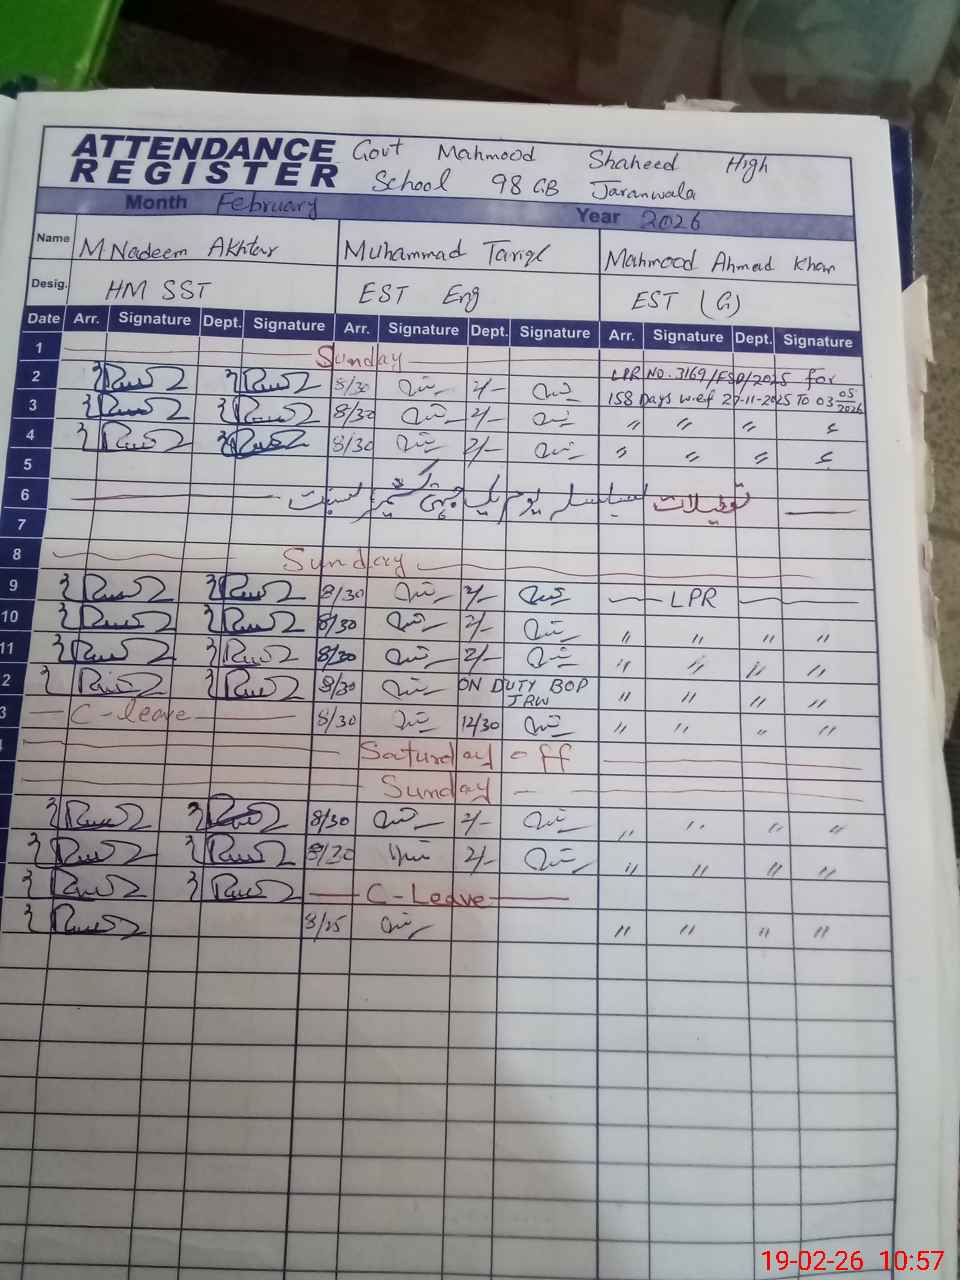 ATTENDANCE REGISTER Govt Mahmood Shaheed High
School 98 GB Jaranwala
Month February Year 2026
Name M Nadeem Akhtar Muhammad Tariq Mahmood Ahmed Khan
Desig. HM SST EST Eng EST (G)
Date Arr. Signature Dept. Signature Arr. Signature Dept. Signature Arr. Signature Dept. Signature
1 Sunday
2 8/30 2/- LPR NO. 3169/FSD/2025 for
3 8/30 2/- 158 Days w.ef 27-11-2025 To 03 05/2026
4 8/30 2/- " " " "
5
6 تعطیلات بسلسلہ یوم یک جہتی کشمیر
7
8 Sunday
9 8/30 2/- LPR
10 8/30 2/- " " " "
11 8/30 2/- " " " "
2 8/30 ON DUTY BOP JRW " " " "
3 C-leave 8/30 12/30 " " " "
Saturday off
Sunday
8/30 2/- " " " "
8/30 2/- " " " "
C-Leave
8/25 " " " "
19-02-26 10:57